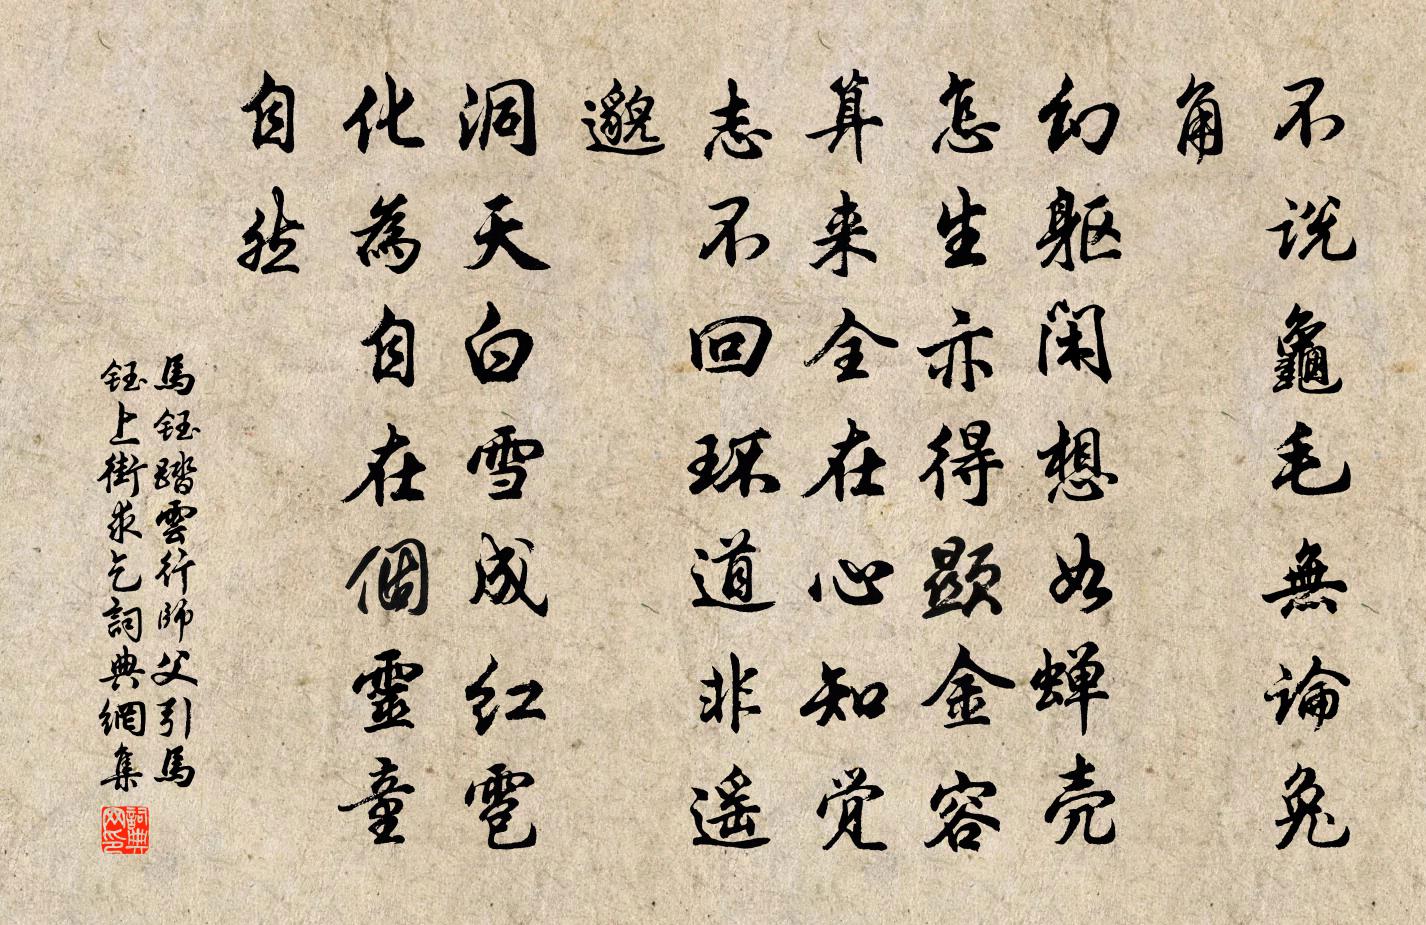 不说龜毛無論兔
角
幻躯閑想如蝉壳
怎生亦得顯金容
算来全在心知觉
志不回环道非遥
邈
洞天白雪成红雹
化為自在個靈童
自然
馬鈺踏雲行師父引馬
鈺上街求乞詞典網集
詞典網印